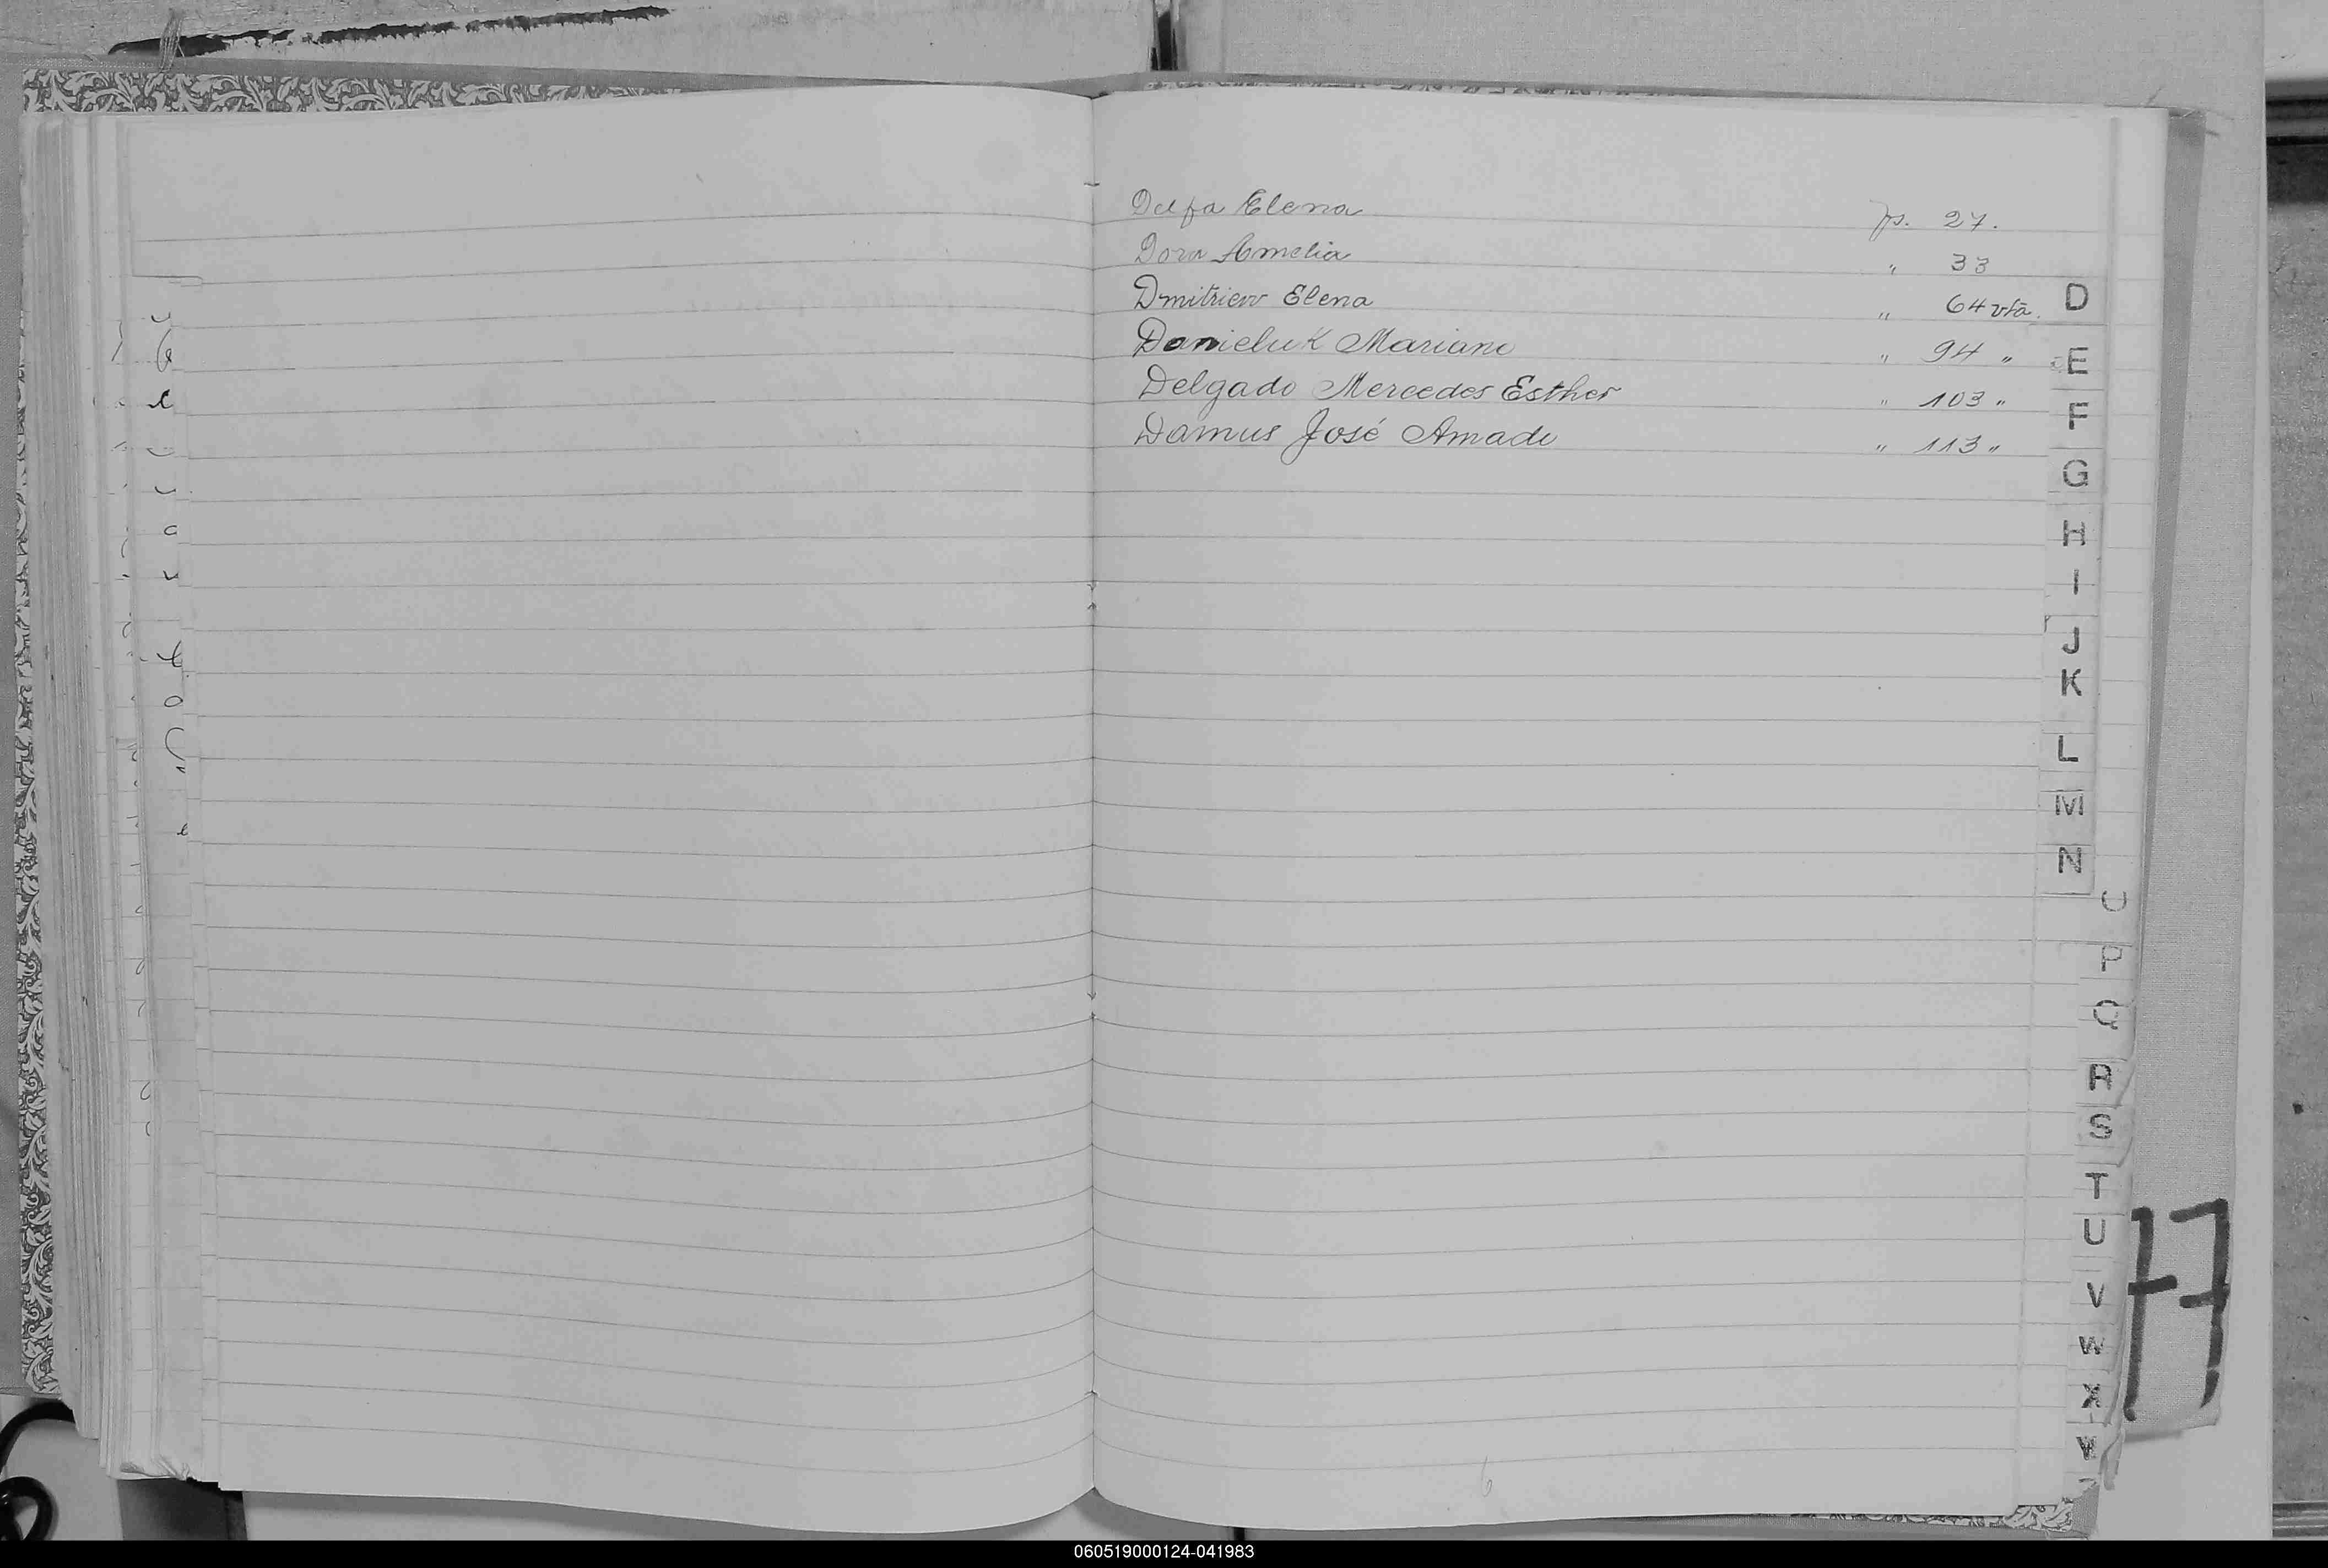 Delfa Elena fs. 27.
Dora Amelia " 33
Dmitriew Elena " 64 vta.
Danieluk Mariano " 94 "
Delgado Mercedes Esther " 103 "
Damus José Amado " 113 "
D
E
F
G
H
I
J
K
L
M
N
O
P
Q
R
S
T
U
V
W
X
Y
77
6
060519000124-041983